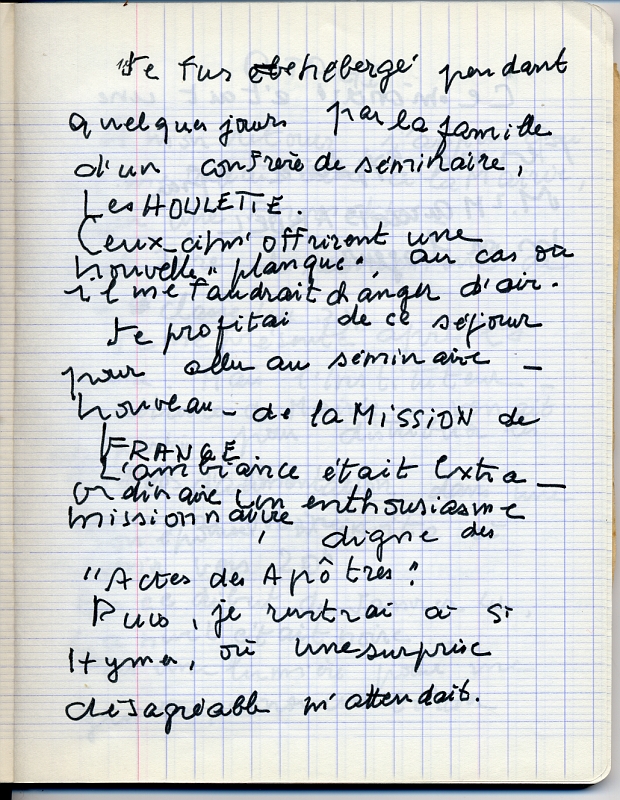 Je fus hébergé pendant
quelques jours par la famille
d'un confrère de séminaire,
Les HOULETTE.
Ceux-ci m'offrirent une
nouvelle "planque", au cas où
il me faudrait changer d'air.
Je profitai de ce séjour
pour aller au séminaire -
nouveau - de la MISSION de
FRANCE
L'ambiance était Extra -
ordinaire un enthousiasme
missionnaire, digne des
"Actes des Apôtres".
Puis, je rentrai à St
Hyma, où une surprise
désagréable m'attendait.